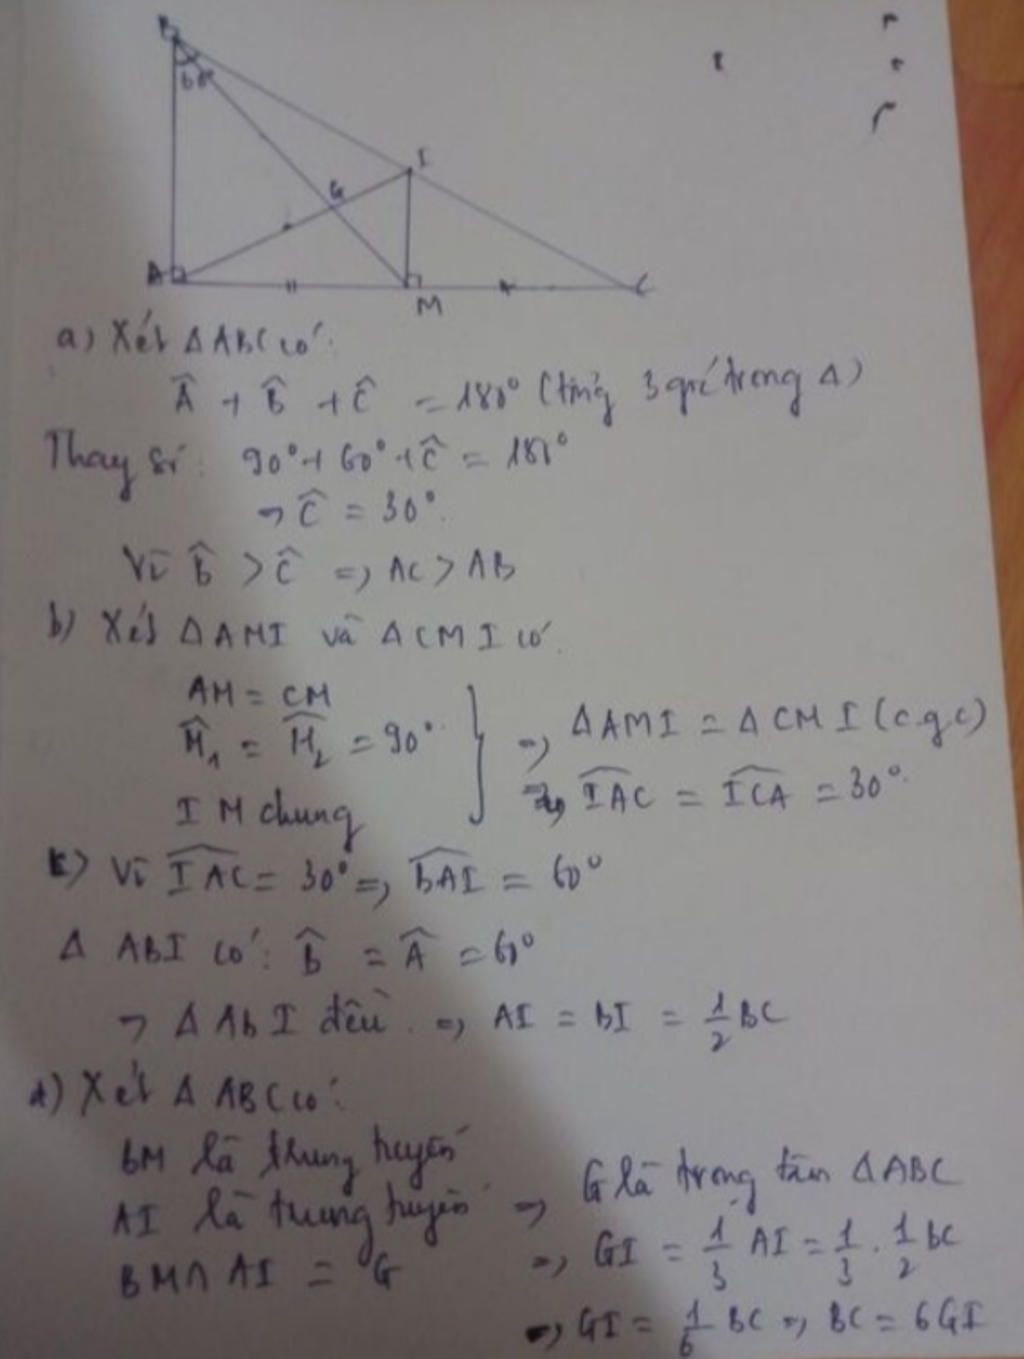 B
60°
I
G
A
M
C
a) Xét Δ ABC có:
Â + B̂ + Ĉ = 180° (tổng 3 góc trong Δ)
Thay số: 90° + 60° + Ĉ = 180°
→ Ĉ = 30°.
Vì B̂ > Ĉ => AC > AB
b) Xét Δ AMI và Δ CMI có:
AM = CM
M̂₁ = M̂₂ = 90°
IM chung
=> Δ AMI = Δ CMI (c.g.c)
=> IAC = ICA = 30°.
c) Vì IAC = 30° => BAI = 60°
Δ ABI có: B̂ = Â = 60°
→ Δ ABI đều. => AI = BI = 1/2 BC
d) Xét Δ ABC có:
BM là trung tuyến
AI là trung tuyến
BM ∩ AI = G
=> G là trọng tâm Δ ABC
=> GI = 1/3 AI = 1/3 . 1/2 BC
=> GI = 1/6 BC => BC = 6GI